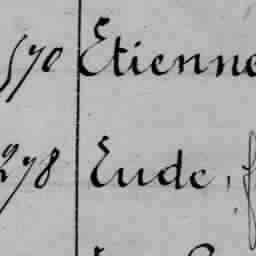 570 Etienne
278 Eude, f